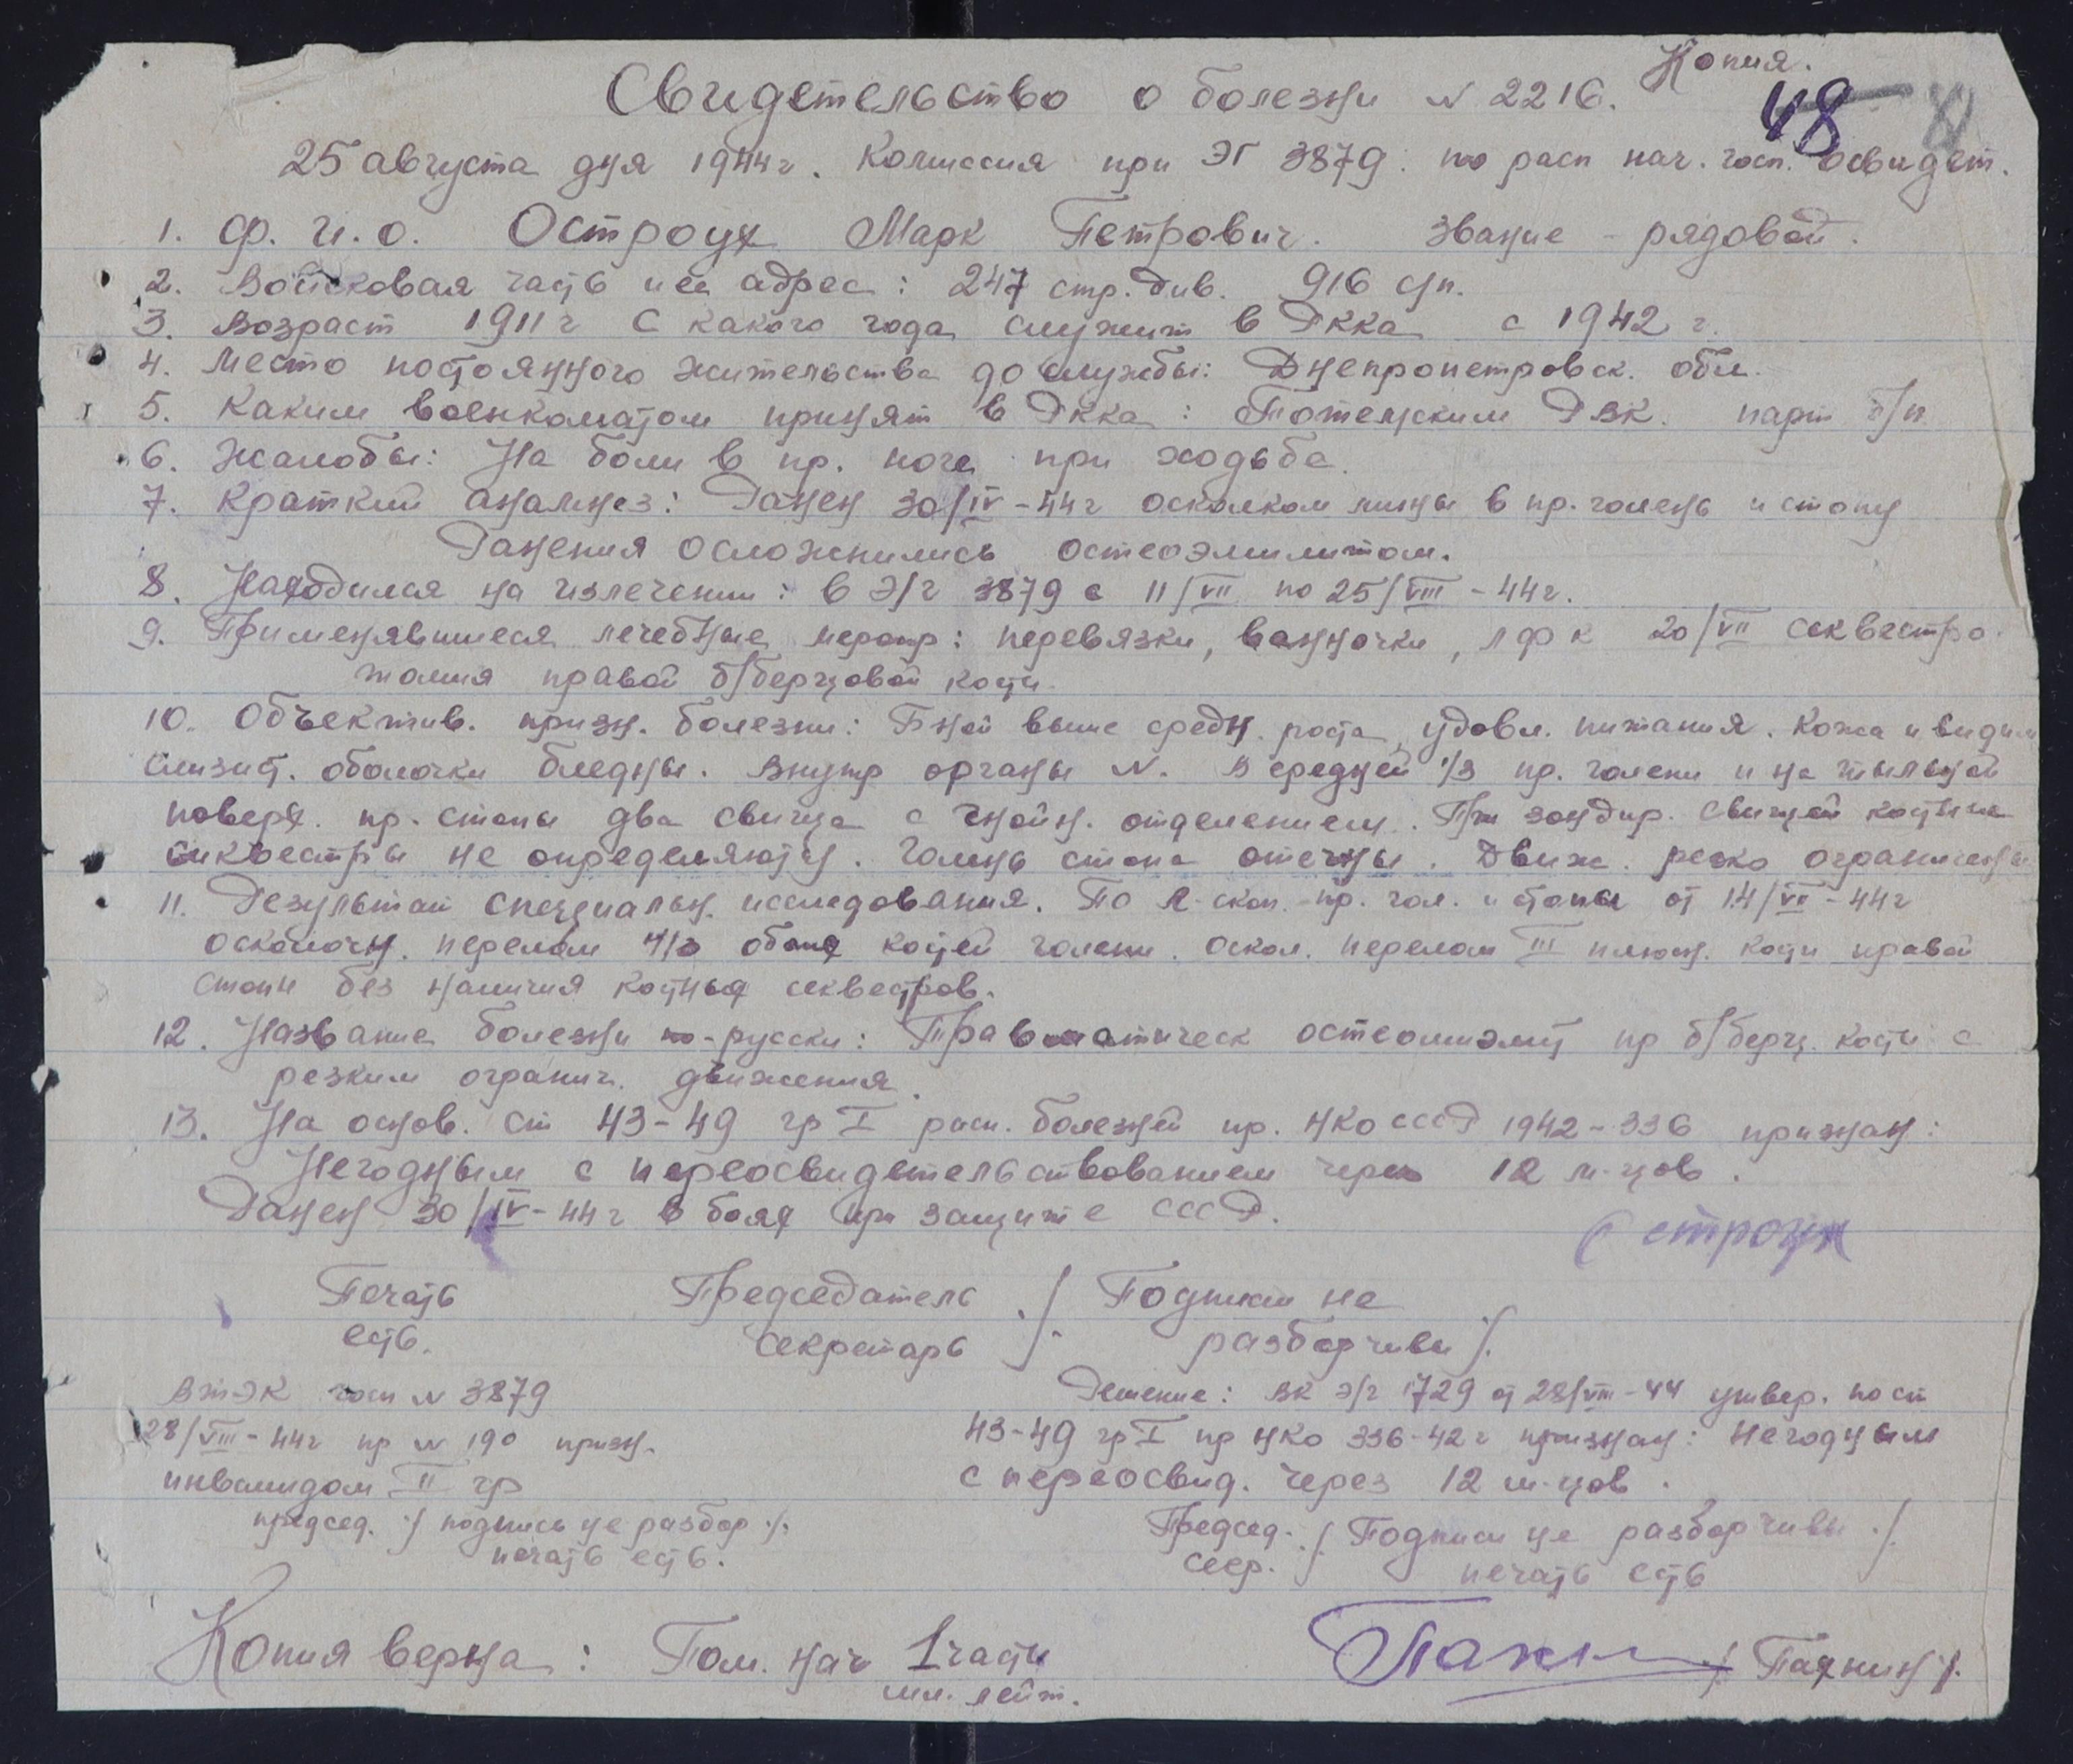 Копия.
Свидетельство о болезни № 2216.
48
25 августа дня 1944г. Комиссия при ЭГ 3879 по расп нач. госп. освидет.
1. Ф. И. О. Остроух Марк Петрович. звание - рядовой.
2. Войсковая часть и ее адрес: 247 стр. див. 916 сп.
3. Возраст 1911г С какого года служит в РККА с 1942 г.
4. Место постоянного жительства до службы: Днепропетровск. обл.
5. Каким военкоматом принят в РККА: РВК. парт б/п
6. Жалобы: На боли в пр. ноге при ходьбе.
7. Краткий анамнез: Ранен 30/IV-44г осколком мины в пр. голень и стопу
Ранения осложнились остеоэмилитом.
8. Находился на излечении: в Э/г 3879 с 11/VII по 25/VIII-44г.
9. Применявшиеся лечебные меропр: перевязки, ванночки, лфк 20/VII секвестро-
томия правой б/берцовой кости.
10. Объектив. призн. болезни: Бной выше средн. роста, удовл. питания. Кожа и видим
слизист. оболочки бледны. Внутр органы N. В средней 1/3 пр. голени и на тыльной
поверх. пр. стопы два свища с гнойн. отделением. При зондир. свищей костные
сиквестры не определяются. Голень стопа отечны. Движ. резко ограничены
11. Результат специальн. исследования. По R-скоп. пр. гол. и стопы от 14/VII-44г
осколочн. перелом обоих костей голени. оскол. перелом III плюсн. кости правой
стопы без наличия костных секвестров.
12. Название болезни по-русски: Травматическ остеомиэлит пр б/берц. кости с
резким огранич. движения.
13. На основ. ст 43-49 гр I расп. болезней пр. НКО СССР 1942-336 признан:
Негодным с переосвидетельствованием через 12 м-цов.
Ранен 30/IV-44г в боях при защите СССР.
Остроух
Печать Председатель ./ Подписи не
есть. секретарь ./ разборчивы /.
ВТЭК госп № 3879
28/VIII-44г пр № 190 призн.
инвалидом II гр
председ. ./ подпись не разбор ./.
печать есть.
Решение: ВК э/г 1729 от 28/VIII-44 утвер. по ст
43-49 гр I пр НКО 336-42г признан: Негодным
с переосвид. через 12 м-цов.
Председ. ./ Подписи не разборчивы ./.
секр. печать есть
Копия верна: Пом. нач 1 части / Пахнин /.
мл. лейт.